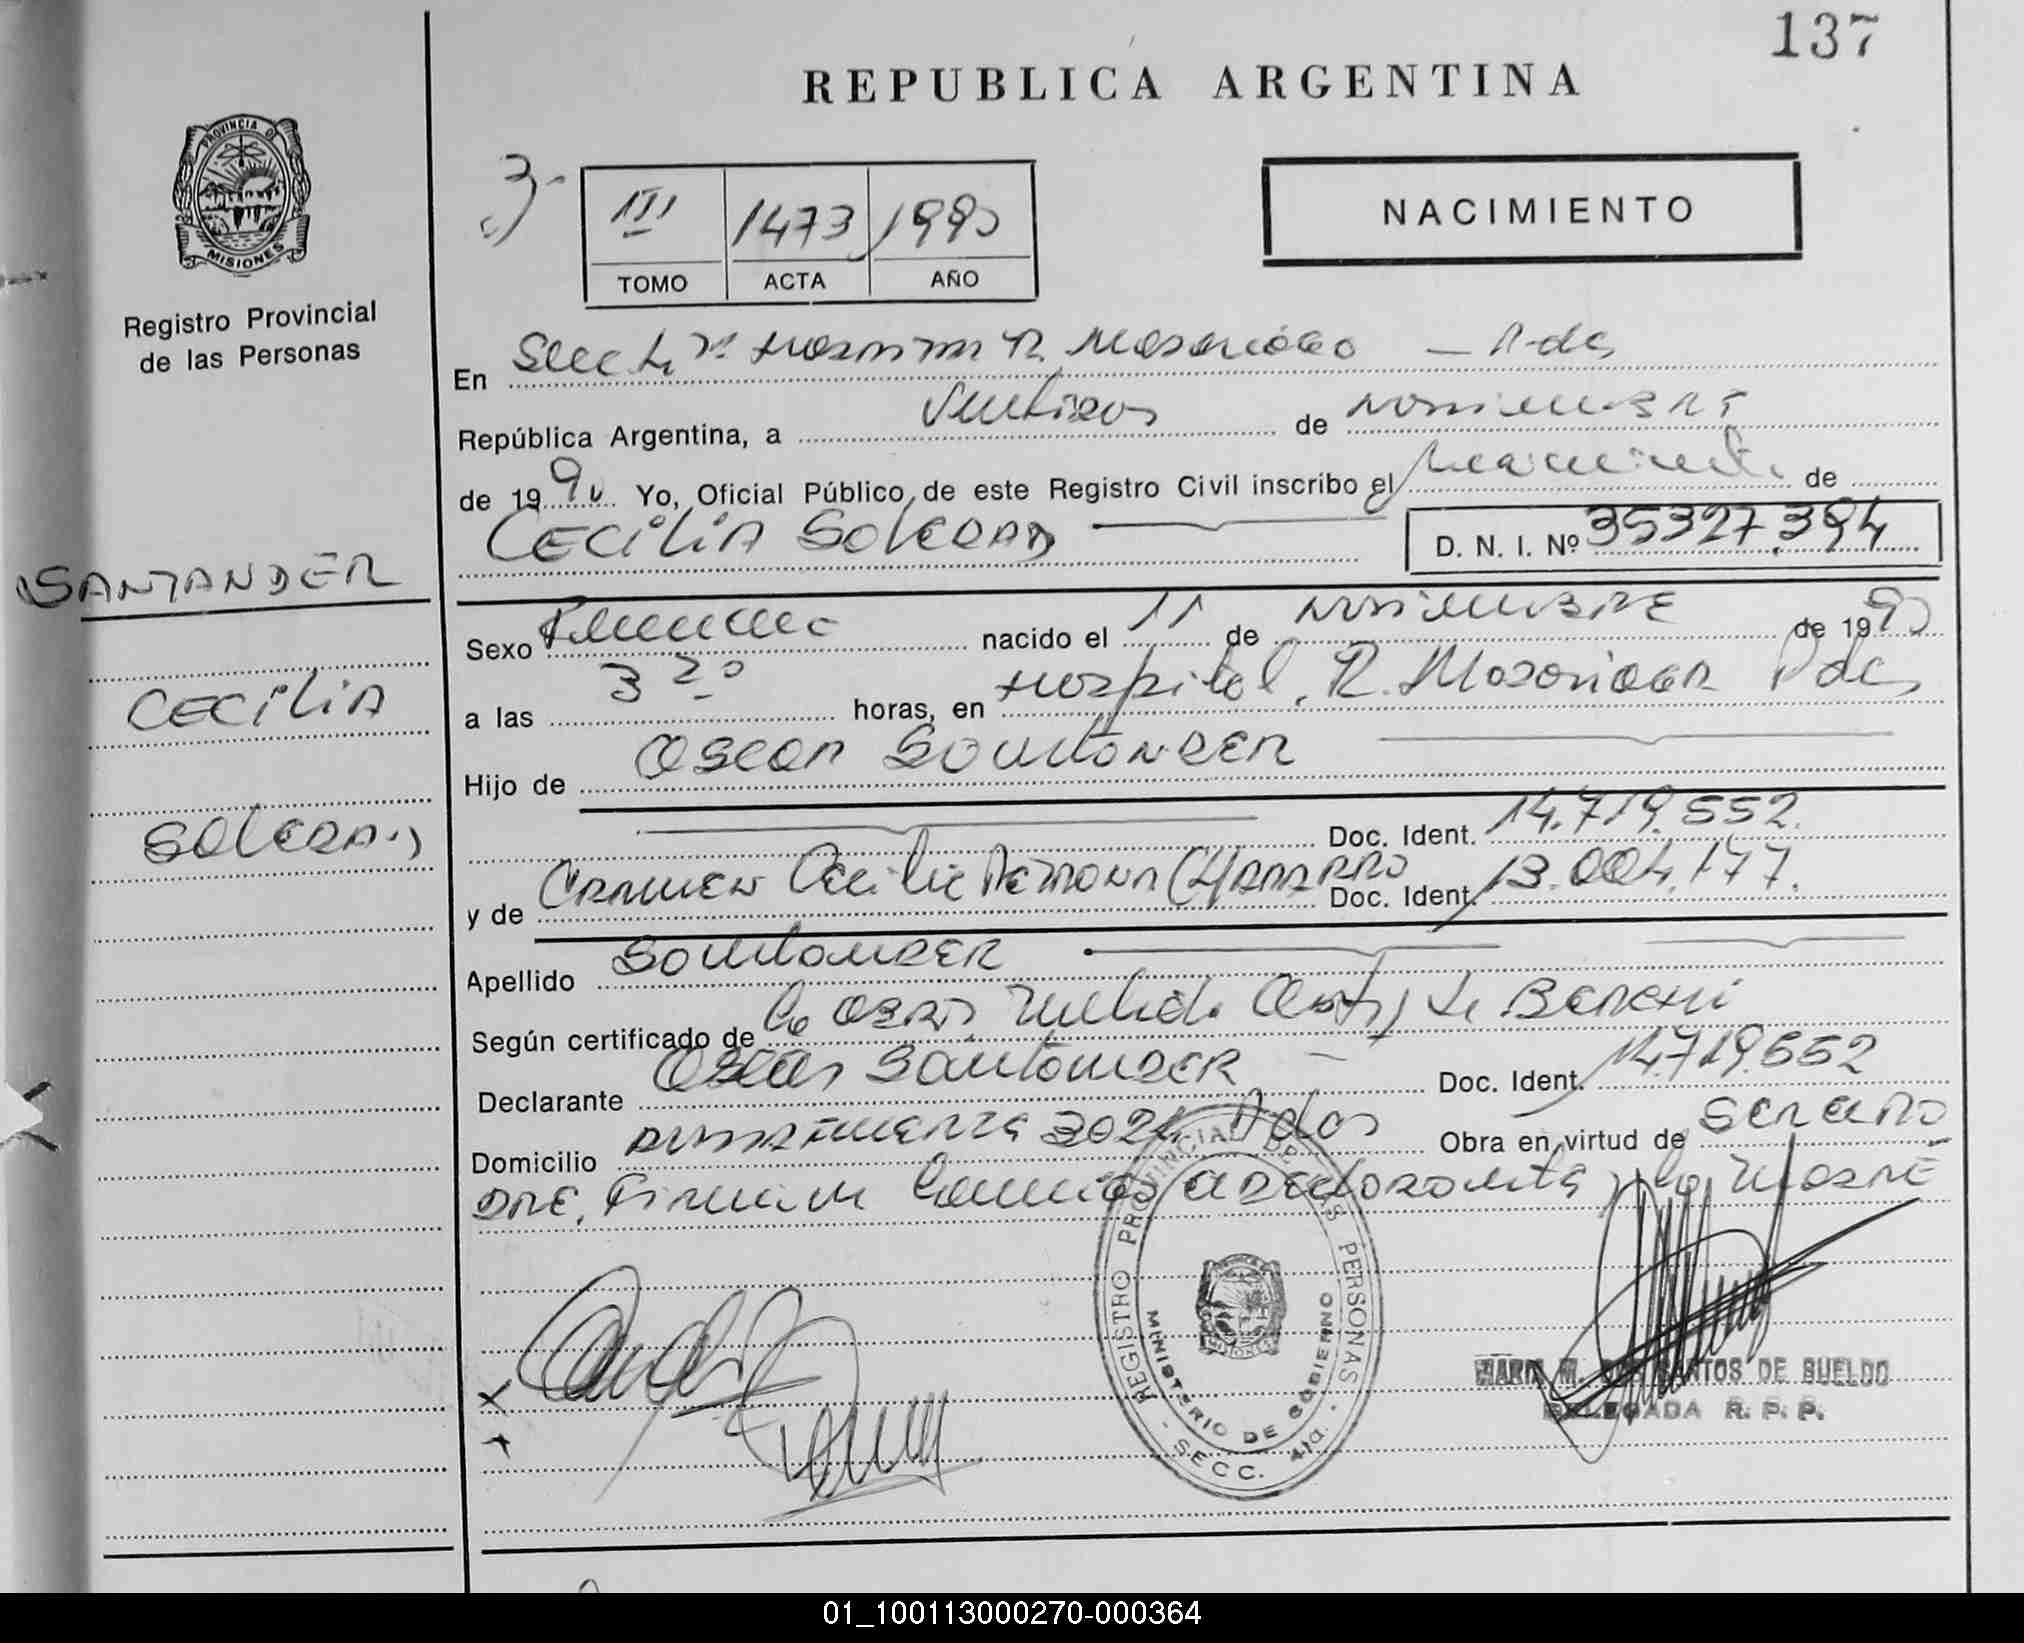 137
REPUBLICA ARGENTINA
PROVINCIA DE
MISIONES
Registro Provincial
de las Personas
3-
III 1473 1990
TOMO ACTA AÑO
NACIMIENTO
En R. - Pdas
República Argentina, a de noviembre
de 1990. Yo, Oficial Público, de este Registro Civil inscribo el nacimiento de
CECILIA SOLEDAD D. N. I. Nº 35327.394
SANTANDER
CECILIA
SOLEDAD
Sexo Femenino nacido el 11 de NOVIEMBRE de 1990
a las 3 20 horas, en Hospital R. Pdas
Hijo de OSCAR SANTANDER
Doc. Ident. 14.719.552.
y de CARMEN Cecilia RAMONA CHAPARRO Doc. Ident. 13.004.177.
Apellido SANTANDER
Según certificado de la de
Declarante Oscar SANTANDER - Doc. Ident. 14.719.552
Domicilio Pdas Obra en virtud de
la MADRE
REGISTRO PROVINCIAL DE LAS PERSONAS
MINISTERIO DE GOBIERNO
- SECC. 4ta. -
MARIA M. SANTOS DE SUELDO
DELEGADA R. P. P.
01_100113000270-000364